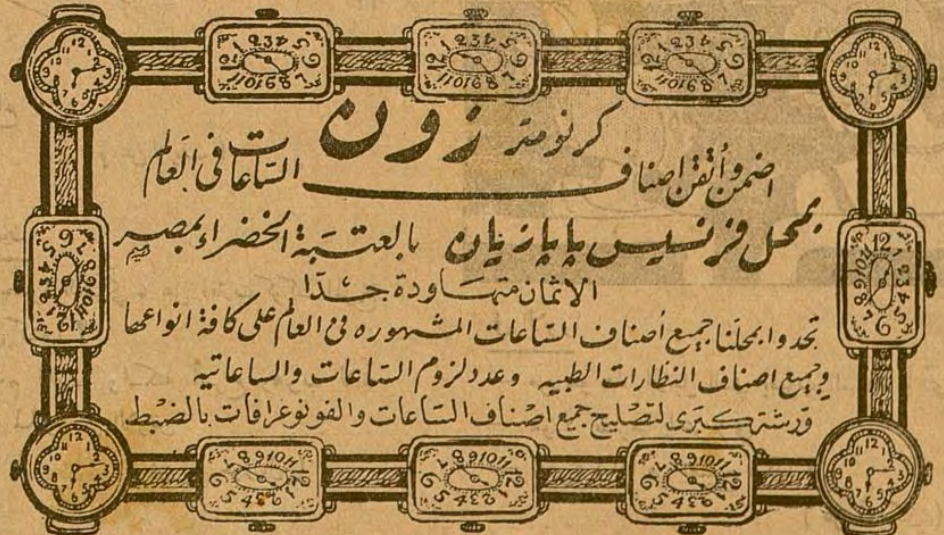 كرنومتر زون
اضمن وأتقن اصناف الساعات فى العالم
بمحل فرنسيس پاپازيان بالعتبة الخضراء بمصر
الاثمان متهاودة جدا
تجدوا بمحلنا جميع أصناف الساعات المشهوره فى العالم على كافة انواعها
وجميع اصناف النظارات الطبيه وعدد لزوم الساعات والساعاتيه
ورشة كبرى لتصليح جميع اصناف الساعات والفونوغرافات بالضبط